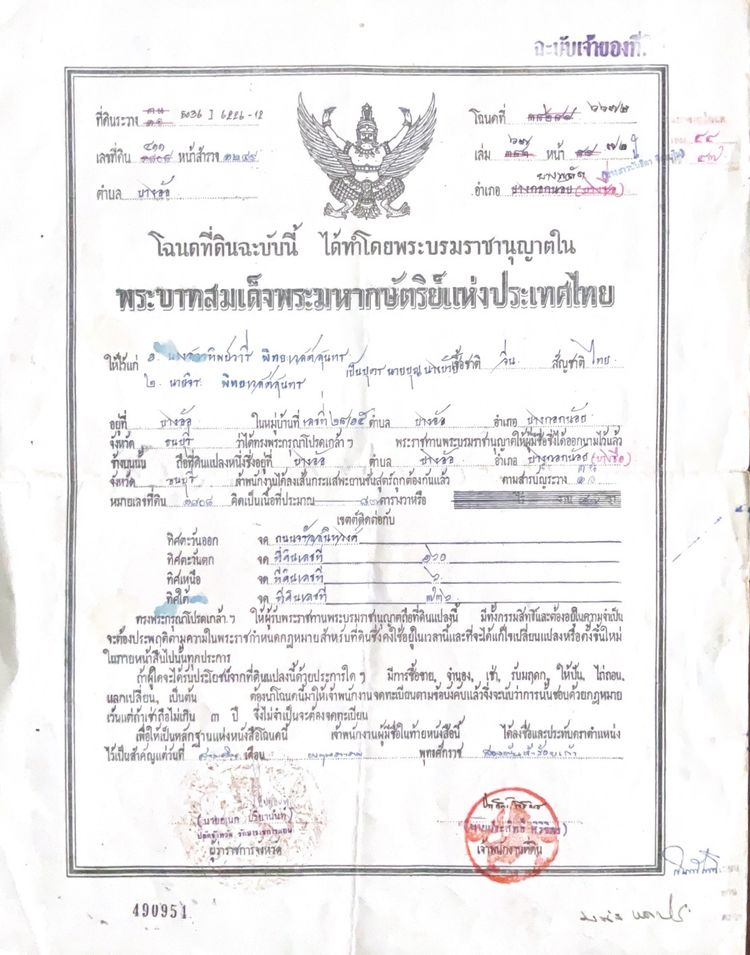 ฉะบับเจ้าของที่
ที่ดินระวาง 5036 I 6226-12 โฉนดที่ ๖๖๗๒
เลขที่ดิน ๔๑๑ หน้าสำรวจ ๑๒๔๙ เล่ม ๖๗ หน้า ๗๒
บางพลัด
ตำบล บางอ้อ อำเภอ บางกอกน้อย (บางซื่อ)
๕๕
๔๗
โฉนดที่ดินฉะบับนี้ ได้ทำโดยพระบรมราชานุญาตใน
พระบาทสมเด็จพระมหากษัตริย์แห่งประเทศไทย
ให้ไว้แก่ ๑. พิทยเวสต์สุนทร เชื้อชาติ จีน สัญชาติ ไทย
๒. พิทยเวสต์สุนทร เป็นบุตร นายบุญ
อยู่ที่ บางอ้อ ในหมู่บ้านที่ เลขที่ ตำบล บางอ้อ อำเภอ บางกอกน้อย
จังหวัด ธนบุรี ว่าได้ทรงพระกรุณาโปรดเกล้าฯ พระราชทานพระบรมราชานุญาตให้ผู้มีชื่อซึ่งได้ออกนามไว้แล้ว
ข้างบนนั้น ถือที่ดินแปลงหนึ่งซึ่งอยู่ที่ บางอ้อ ตำบล บางอ้อ อำเภอ บางกอกน้อย (บางซื่อ)
จังหวัด ธนบุรี เจ้าพนักงานได้ลงเส้นกระแสพะยานขันธสูตร์ถูกต้องกันแล้ว ตามสารบัญระวาง
หมายเลขที่ดิน ๑๘๐๘ คิดเป็นเนื้อที่ประมาณ ตารางวาหรือ
เขตต์ติดต่อกับ
ทิศตะวันออก จด ถนนจรัญสนิทวงศ์
ทิศตะวันตก จด ที่ดินเลขที่ ๑๖๐
ทิศเหนือ จด ที่ดินเลขที่
ทิศใต้ จด ที่ดินเลขที่
ทรงพระกรุณาโปรดเกล้าฯ ให้ผู้รับพระราชทานพระบรมราชานุญาตถือที่ดินแปลงนี้ มีทั้งกรรมสิทธิและต้องอยู่ในความจำเป็น
จะต้องประพฤติตามความในพระราชกำหนดกฎหมายสำหรับที่ดินซึ่งคงใช้อยู่ในเวลานี้และที่จะได้แก้ไขเปลี่ยนแปลงหรือตั้งขึ้นใหม่
ในภายหน้าสืบไปนั้นทุกประการ
ถ้าผู้ใดจะได้รับประโยชน์จากที่ดินแปลงนี้ด้วยประการใดๆ มีการซื้อขาย, จำนอง, เช่า, รับมฤดก, ให้ปัน, ไถ่ถอน,
แลกเปลี่ยน, เป็นต้น ต้องนำโฉนดนี้มาให้เจ้าพนักงานจดทะเบียนตามข้อบังคับแล้วจึงจะนับว่าการนั้นชอบด้วยกฎหมาย
เว้นแต่ถ้าเช่าถือไม่เกิน ๓ ปี จึ่งไม่จำเป็นจะต้องจดทะเบียน
เพื่อให้เป็นหลักฐานแห่งหนังสือโฉนดนี้ เจ้าพนักงานผู้มีชื่อในท้ายหนังสือนี้ ได้ลงชื่อและประทับตราตำแหน่ง
ไว้เป็นสำคัญแต่วันที่ เดือน พฤษภาคม พุทธศักราช สองพันห้าร้อยเก้า
(นายอเนก ปริยานนท์)
ปลัดจังหวัด รักษาราชการแทน
ผู้ว่าราชการจังหวัด เจ้าพนักงานที่ดิน
490951